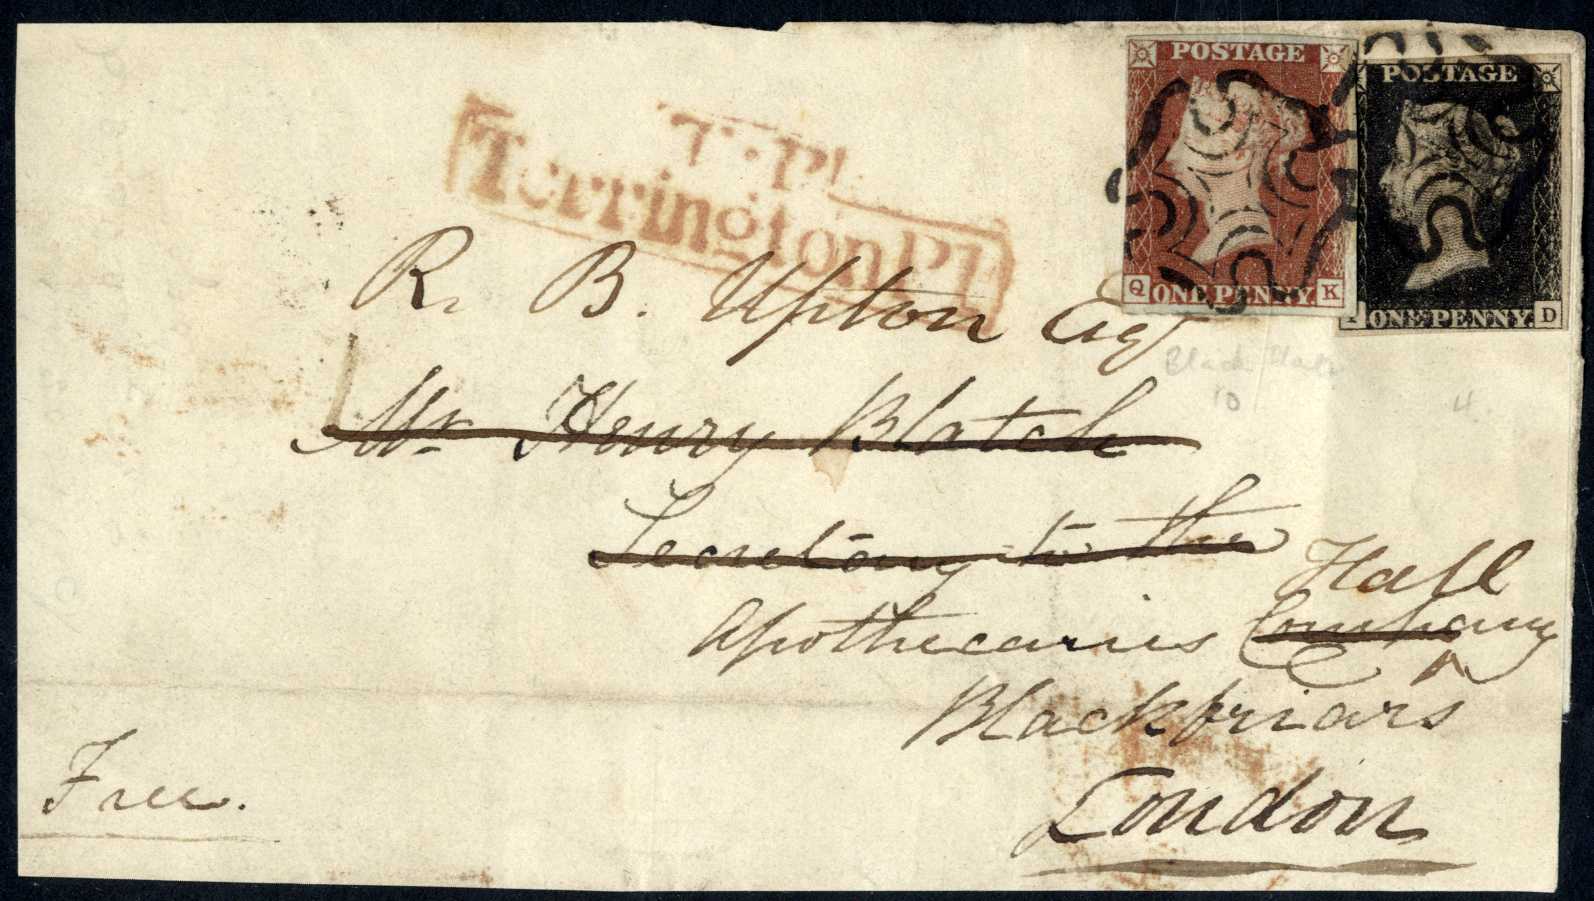 POSTAGE
Q ONE PENNY K
POSTAGE
ONE PENNY D
T.P
Torrington Pl
R. B. Upton Esq
Mr Henry Blatch
Secretary to the
Hall
Apothecaries Company
Blackfriars
London
Free.
Black
10
4